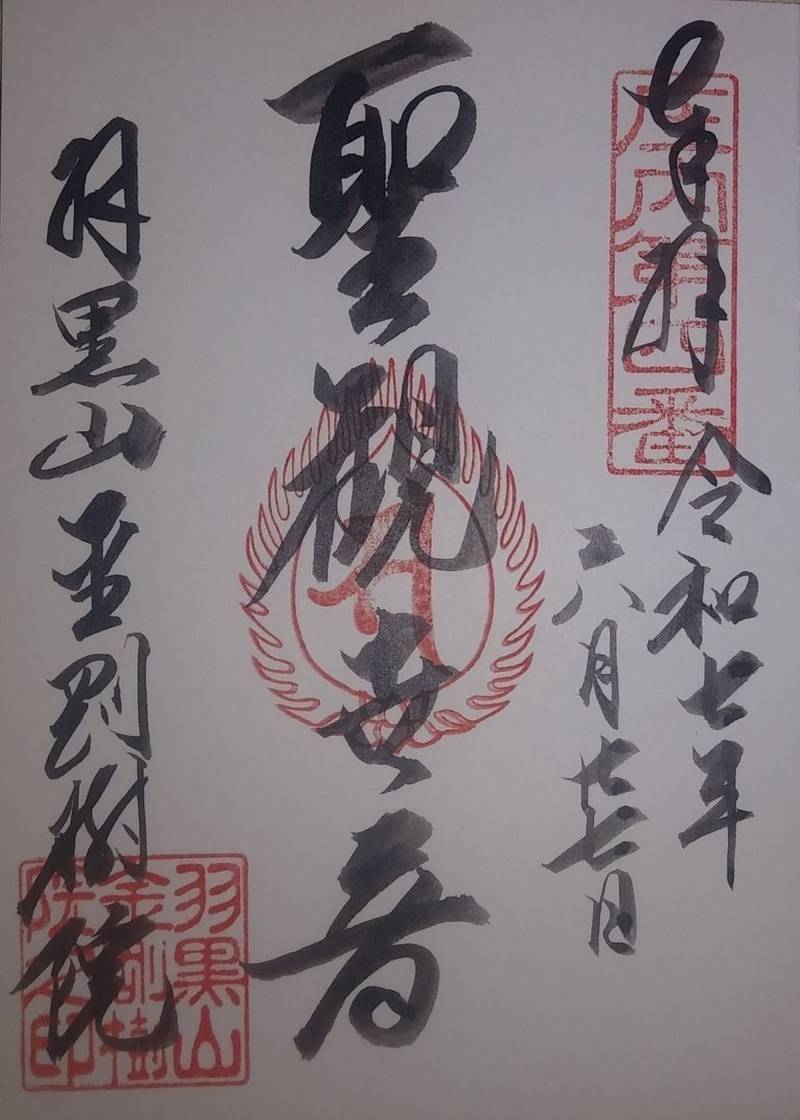 奉拝
庄内第
番
令和七年
六月廿七日
聖観世音
羽黒山金剛樹院
羽黒山
金剛樹
院之印